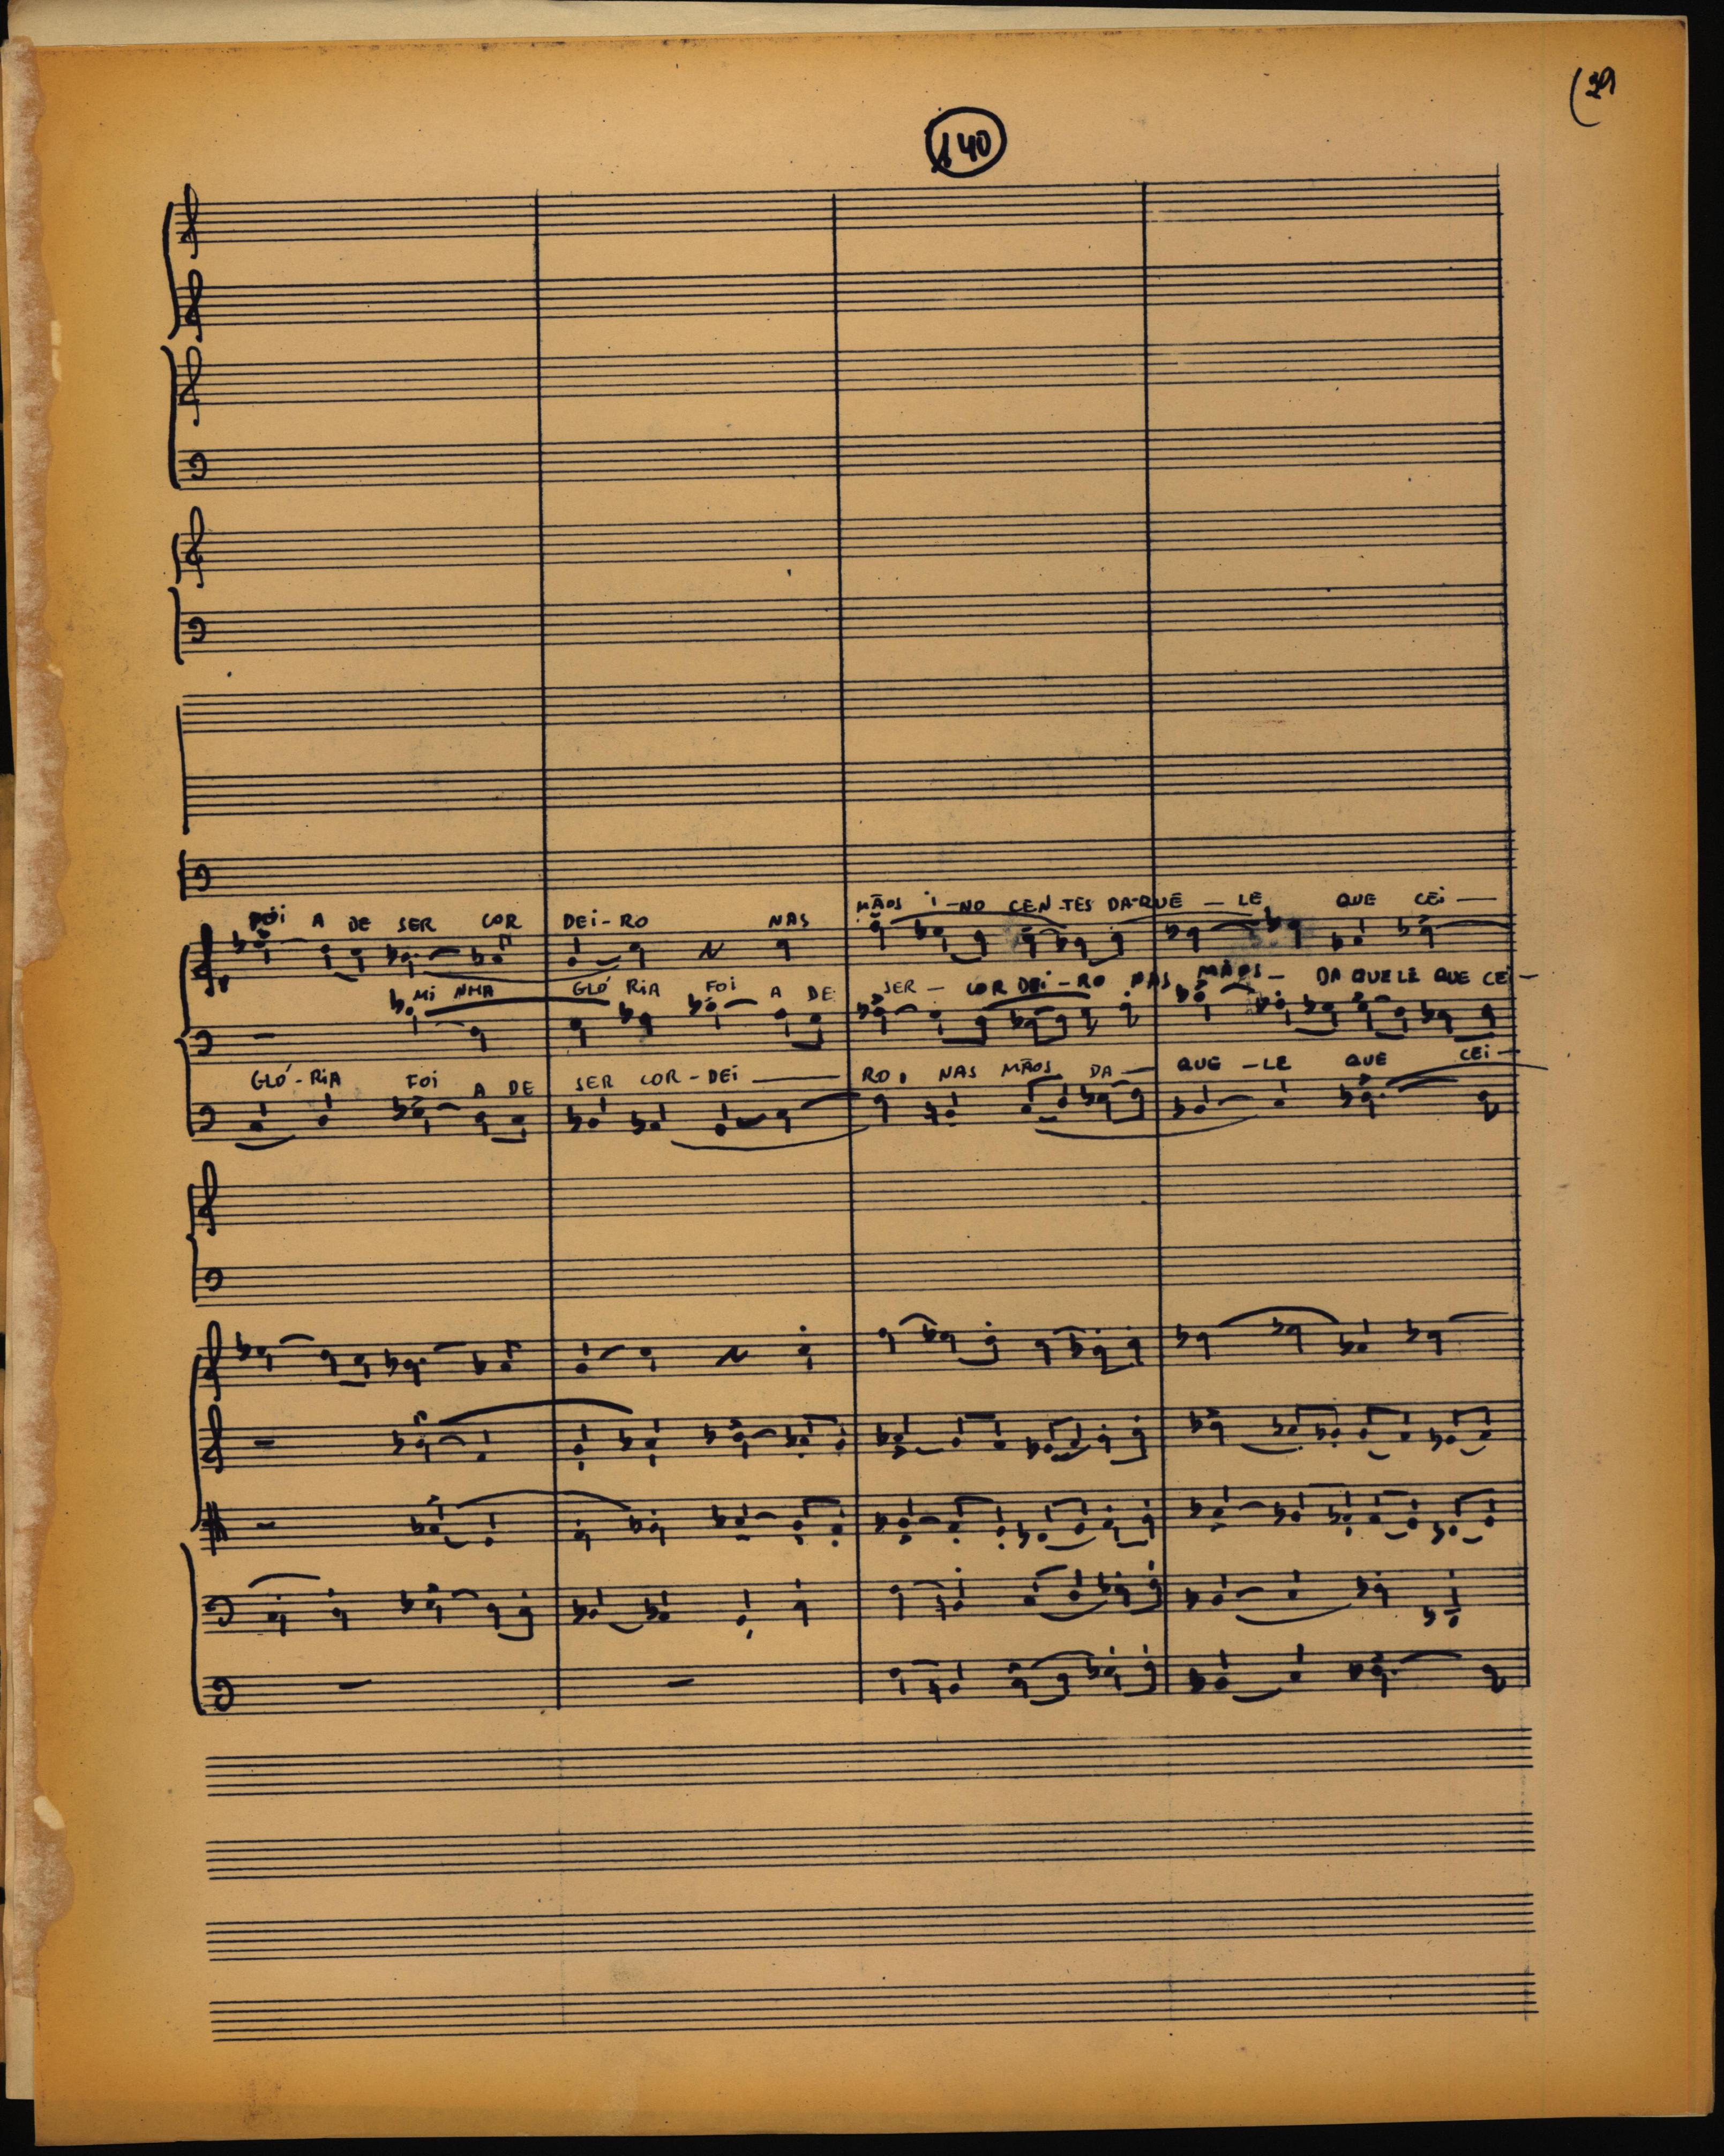 140
FOI A DE SER COR DEI-RO NAS MÃOS I-NO CEN-TES DA-QUE-LE QUE CEI-
MI NHA GLÓ RIA FOI A DE SER - COR DEI-RO NAS MÃOS - DA QUELE QUE CEI-
GLÓ-RIA FOI A DE SER COR-DEI - RO, NAS MÃOS DA - QUE-LE QUE CEI-